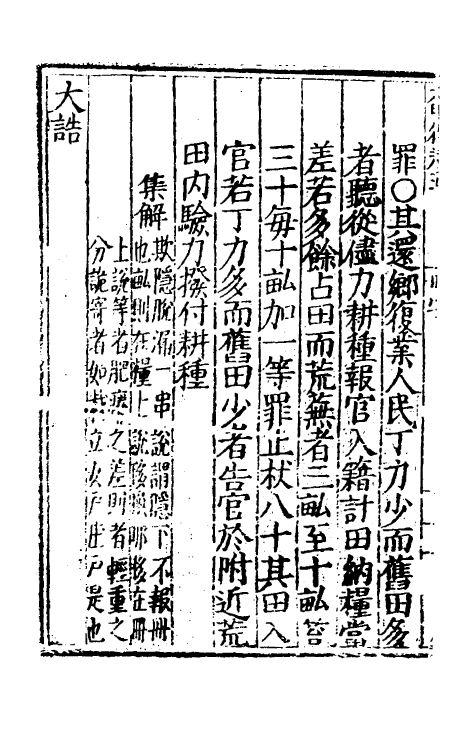 罪○其還鄉復業人民丁力少而舊田多
者聽從儘力耕種報官入籍計田納糧當
差若多餘占田而荒蕪者三畝至十畝笞
三十每十畝加一等罪止杖八十其田入
官若丁力多而舊田少者告官於附近荒
田内驗力撥付耕種
集解欺隱脫漏一串說謂隱下不報冊
也畝則在糧上說移那移在冊
上說等者肥瘠之差則者輕重之
分詭寄者如立女戶庄戶是也
大誥